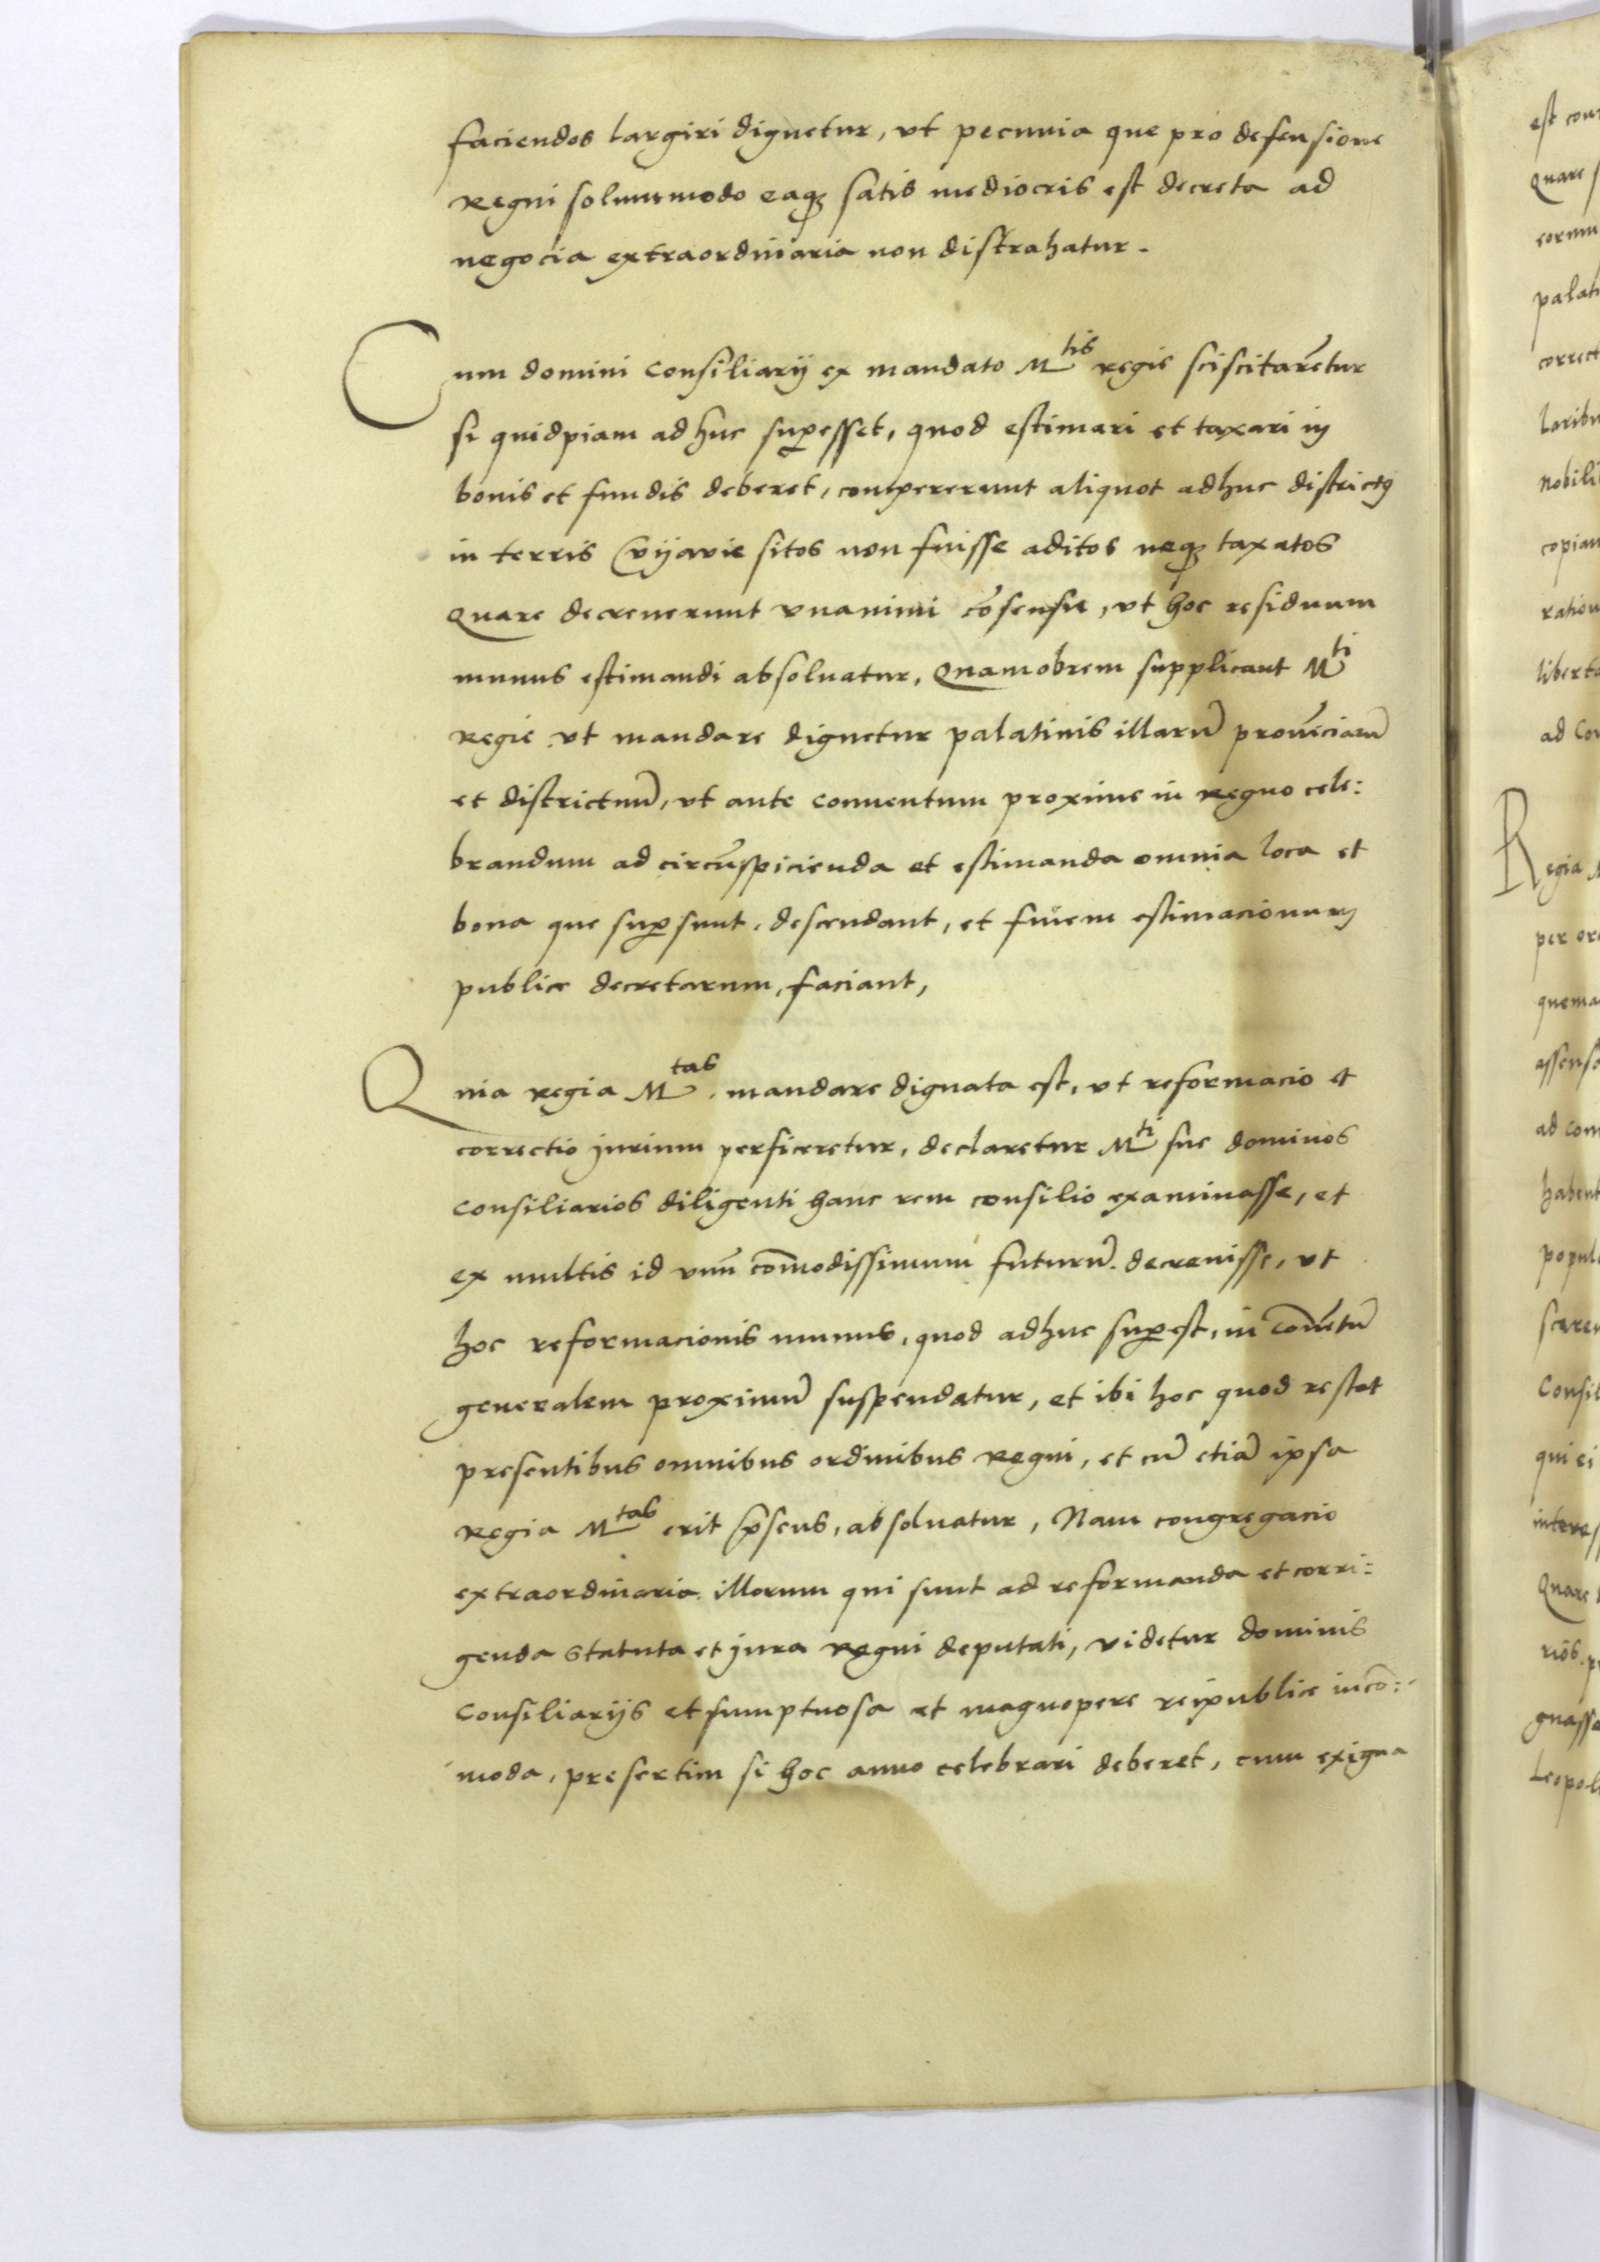 faciendos largiri dignetur, vt pecunia que pro defensione
Regni solummodo eaqꝫ satis mediocris est decreta ad
negocia extraordinaria non distrahatur.
Cum domini Consiliarij ex mandato Mtis regie sciscitarētur
si quidpiam adhuc suꝑesset, quod estimari et taxari in
bonis et fundis deberet, compererunt aliquot adhuc districtꝰ
in terris Cuyavie sitos non fuisse aditos neqꝫ taxatos
Quare decreuerunt vnanimi cōsensu, vt hoc residuum
munus estimandi absoluatur, Quamobrem supplicant Mti
Regie vt mandare dignetur palatinis illarū prouīciarū
et districtuū, vt ante conuentum proxime in Regno cele:
brandum ad circūspicienda et estimanda omnia loca et
bona que suꝑsunt, descendant, et finem estimacionum
publice decretarum, faciant,
Quia Regia Mtas mandare dignata est, vt reformacio et
correctio jurium perficeretur, declaretur Mti sue dominos
Consiliarios diligenti hanc rem consilio examinasse, et
ex multis id vnū cōmodissimum futurū decreuisse, vt
hoc reformacionis munus, quod adhuc suꝑest, in cōuētū
generalem proximū suspendatur, et ibi hoc quod restat
presentibus omnibus ordinibus Regni, et cū etiā ipsa
Regia Mtas erit p̄sens, absoluatur, Nam congregacio
extraordinaria illorum qui sunt ad reformanda et corri:
genda statuta et jura Regni deputati, videtur dominis
Consiliarijs et sumptuosa et magnopere reipublice incō:
moda, presertim si hoc anno celebrari deberet, cum exigua
est
Quare
palati
correct
nobili
copiam
liberta
ad
Regia
per
assens
ad
habent
popul
Consil
qui ei
Quare
Leopol